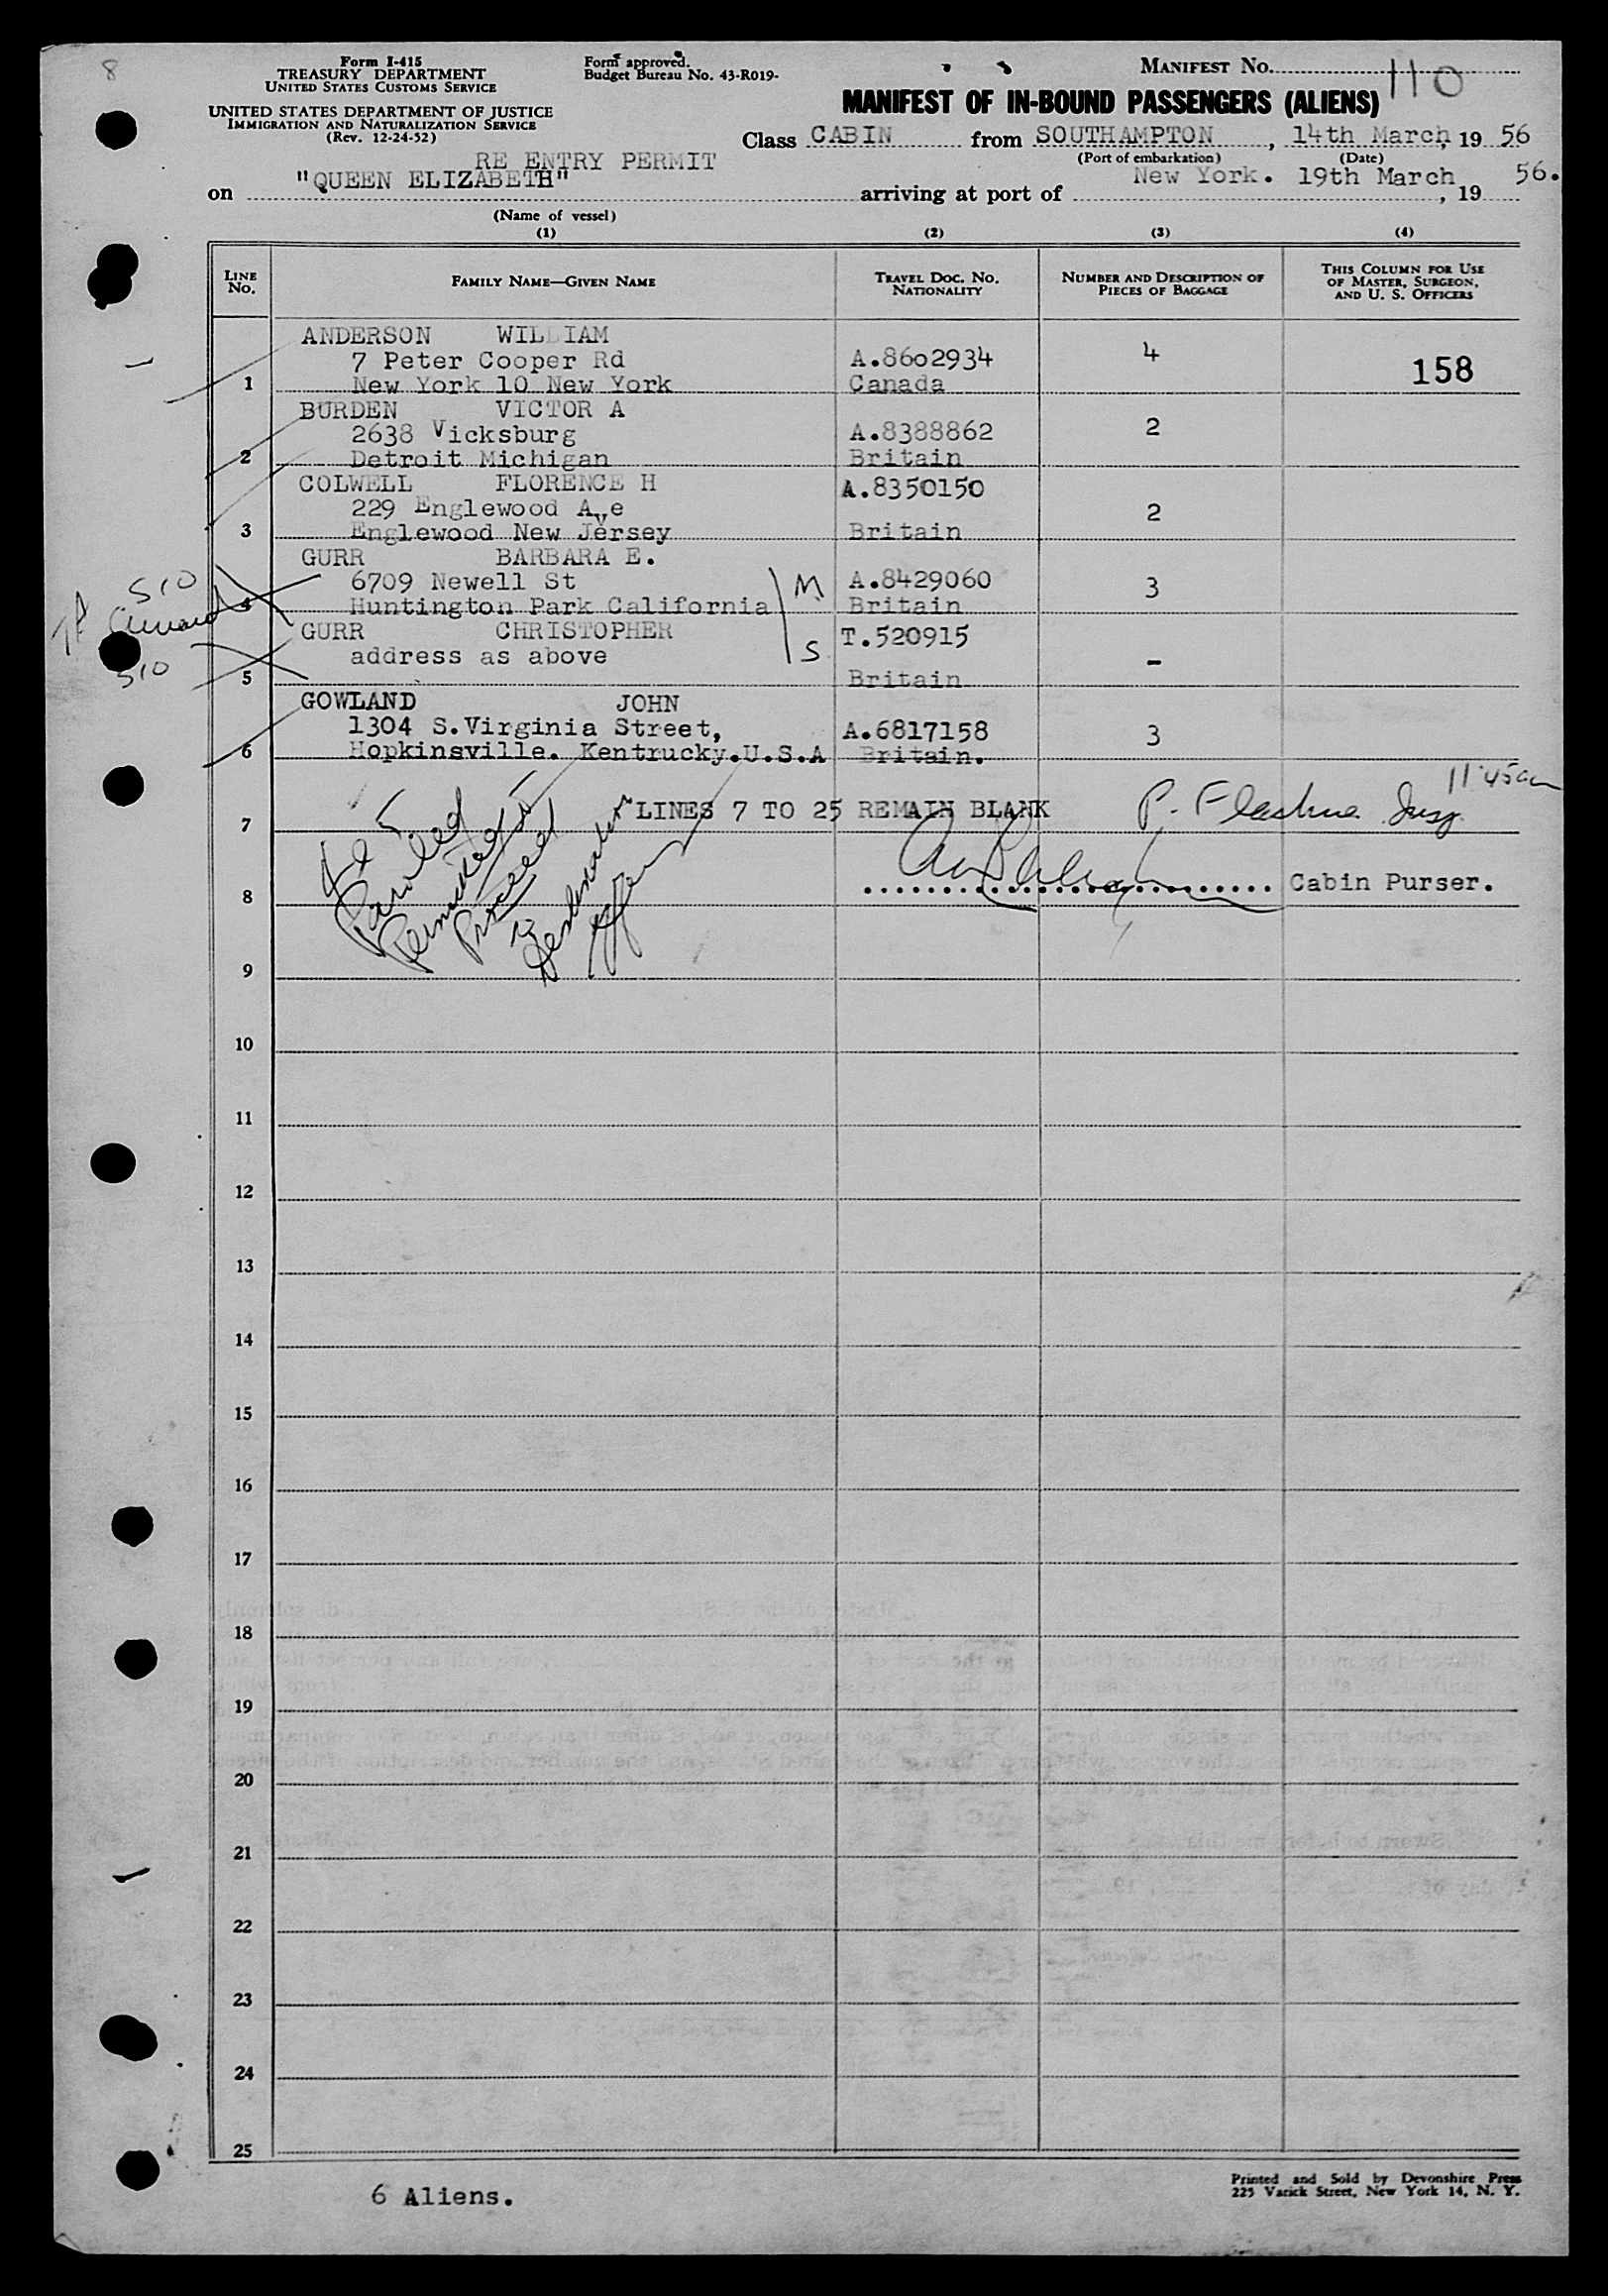 8
Form I-415
TREASURY DEPARTMENT
UNITED STATES CUSTOMS SERVICE
UNITED STATES DEPARTMENT OF JUSTICE
IMMIGRATION AND NATURALIZATION SERVICE
(Rev. 12-24-52)
Form approved.
Budget Bureau No. 43-R019-
MANIFEST NO. 110
MANIFEST OF IN-BOUND PASSENGERS (ALIENS)
Class CABIN from SOUTHAMPTON, 14th March, 19 56
(Port of embarkation) (Date)
RE ENTRY PERMIT
on "QUEEN ELIZABETH" arriving at port of New York. 19th March, 19 56.
(Name of vessel)
(1) (2) (3) (4)
LINE No. FAMILY NAME—GIVEN NAME TRAVEL DOC. NO. NATIONALITY NUMBER AND DESCRIPTION OF PIECES OF BAGGAGE THIS COLUMN FOR USE OF MASTER, SURGEON, AND U. S. OFFICERS
ANDERSON WILLIAM
7 Peter Cooper Rd A.8602934 4 158
1 New York 10 New York Canada
BURDEN VICTOR A
2638 Vicksburg A.8388862 2
2 Detroit Michigan Britain
COLWELL FLORENCE H A.8350150
229 Englewood Ave 2
3 Englewood New Jersey Britain
GURR BARBARA E.
510 6709 Newell St M A.8429060 3
4 Huntington Park California Britain
Cunard
GURR CHRISTOPHER T.520915
510 address as above S -
5 Britain
GOWLAND JOHN
1304 S.Virginia Street, A.6817158 3
6 Hopkinsville. Kentrucky.U.S.A Britain.
11:45am
7 LINES 7 TO 25 REMAIN BLANK P. Insp
4 & 5
Paroled
Permitted to
proceed
to
Destination
8 Cabin Purser.
9
10
11
12
13
14
15
16
17
18
19
20
21
22
23
24
25
6 Aliens.
Printed and Sold by Devonshire Press
225 Varick Street, New York 14, N. Y.